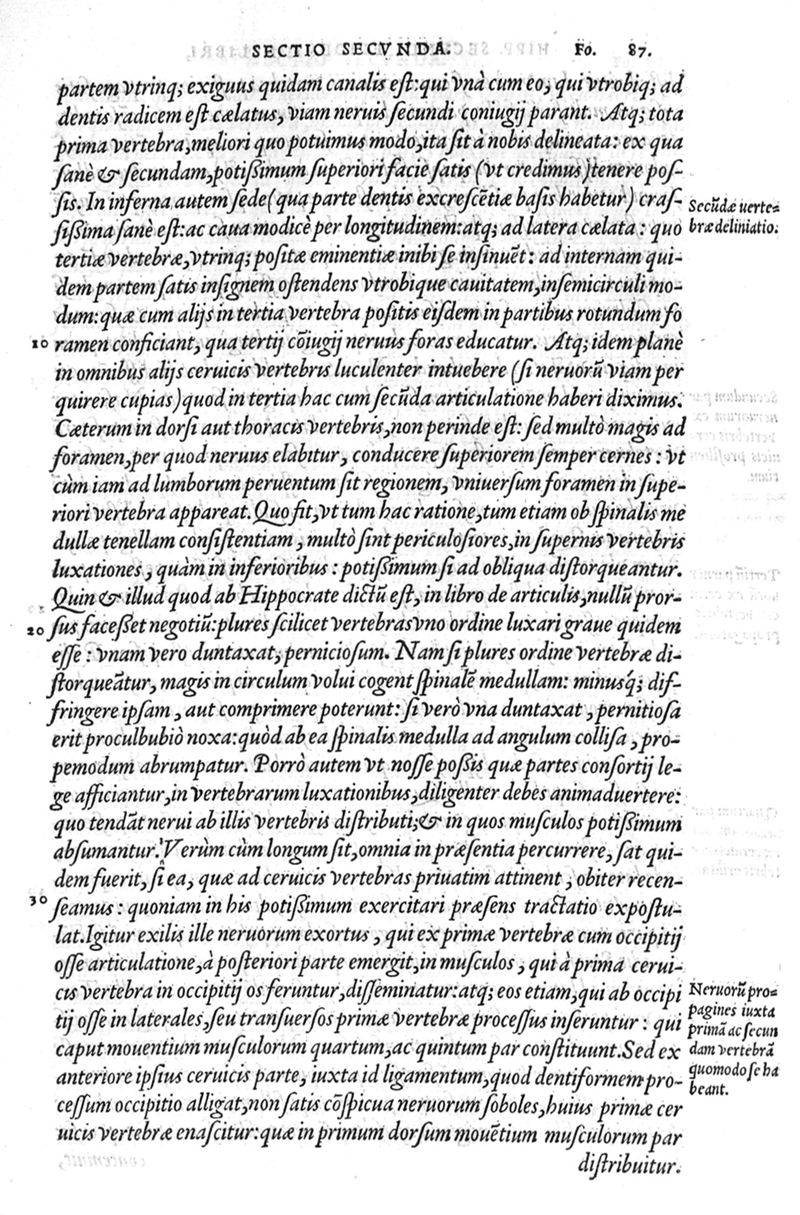 SECTIO SECVNDA. Fo. 87.
partem vtrinq; exiguus quidam canalis eſt: qui vnà cum eo, qui vtrobiq; ad
dentis radicem eſt cælatus, viam neruis ſecundi coniugij parant. Atq; tota
prima vertebra, meliori quo potuimus modo, ita ſit à nobis delineata: ex qua
ſanè & ſecundam, potißimum ſuperiori facie ſatis (vt credimus) tenere poſ-
ſis. In inferna autem ſede (qua parte dentis excreſcẽtiæ baſis habetur) craſ-
ſißima ſanè eſt: ac caua modicè per longitudinem: atq; ad latera cælata: quo
tertiæ vertebræ, vtrinq; poſitæ eminentiæ inibi ſe inſinuẽt: ad internam qui-
dem partem ſatis inſignem oſtendens vtrobique cauitatem, in ſemicirculi mo-
dum: quæ cum alijs in tertia vertebra poſitis eiſdem in partibus rotundum fo
10 ramen conficiant, qua tertij cõiugij neruus foras educatur. Atq; idem planè
in omnibus alijs ceruicis vertebris luculenter intuebere (ſi neruorũ viam per
quirere cupias) quod in tertia hac cum ſecũda articulatione haberi diximus.
Cæterum in dorſi aut thoracis vertebris, non perinde eſt: ſed multò magis ad
foramen, per quod neruus elabitur, conducere ſuperiorem ſemper cernes: vt
cùm iam ad lumborum peruentum ſit regionem, vniuerſum foramen in ſupe-
riori vertebra appareat. Quo fit, vt tum hac ratione, tum etiam ob ſpinalis me
dullæ tenellam conſiſtentiam, multò ſint periculoſiores, in ſupernis vertebris
luxationes, quàm in inferioribus: potißimum ſi ad obliqua diſtorqueantur.
Quin & illud quod ab Hippocrate dictũ eſt, in libro de articulis, nullũ pror-
20 ſus faceßet negotiũ: plures ſcilicet vertebras vno ordine luxari graue quidem
eſſe: vnam vero duntaxat, pernicioſum. Nam ſi plures ordine vertebræ di-
ſtorqueãtur, magis in circulum volui cogent ſpinalẽ medullam: minusq́; dif-
fringere ipſam, aut comprimere poterunt: ſi verò vna duntaxat, pernitioſa
erit proculbubiò noxa: quòd ab ea ſpinalis medulla ad angulum colliſa, pro-
pemodum abrumpatur. Porrò autem vt noſſe poßis quæ partes conſortij le-
ge afficiantur, in vertebrarum luxationibus, diligenter debes animaduertere:
quo tendãt nerui ab illis vertebris diſtributi; & in quos muſculos potißimum
abſumantur. Verùm cùm longum ſit, omnia in præſentia percurrere, ſat qui-
dem fuerit, ſi ea, quæ ad ceruicis vertebras priuatim attinent, obiter recen-
30 ſeamus: quoniam in his potißimum exercitari præſens tractatio expoſtu-
lat. Igitur exilis ille neruorum exortus, qui ex primæ vertebræ cum occipitij
oſſe articulatione, à poſteriori parte emergit, in muſculos, qui à prima cerui-
cis vertebra in occipitij os feruntur, diſſeminatur: atq; eos etiam, qui ab occipi
tij oſſe in laterales, ſeu tranſuerſos primæ vertebræ proceſſus inſeruntur: qui
caput mouentium muſculorum quartum, ac quintum par conſtituunt. Sed ex
anteriore ipſius ceruicis parte, iuxta id ligamentum, quod dentiformem pro-
ceſſum occipitio alligat, non ſatis cõſpicua neruorum ſoboles, huius primæ cer
uicis vertebræ enaſcitur: quæ in primum dorſum mouẽtium muſculorum par
diſtribuitur.
Secũdæ uerte-
bræ deliniatio.
Neruorũ pro-
pagines iuxta
primã ac ſecun
dam vertebrã
quomodo ſe ha
beant.